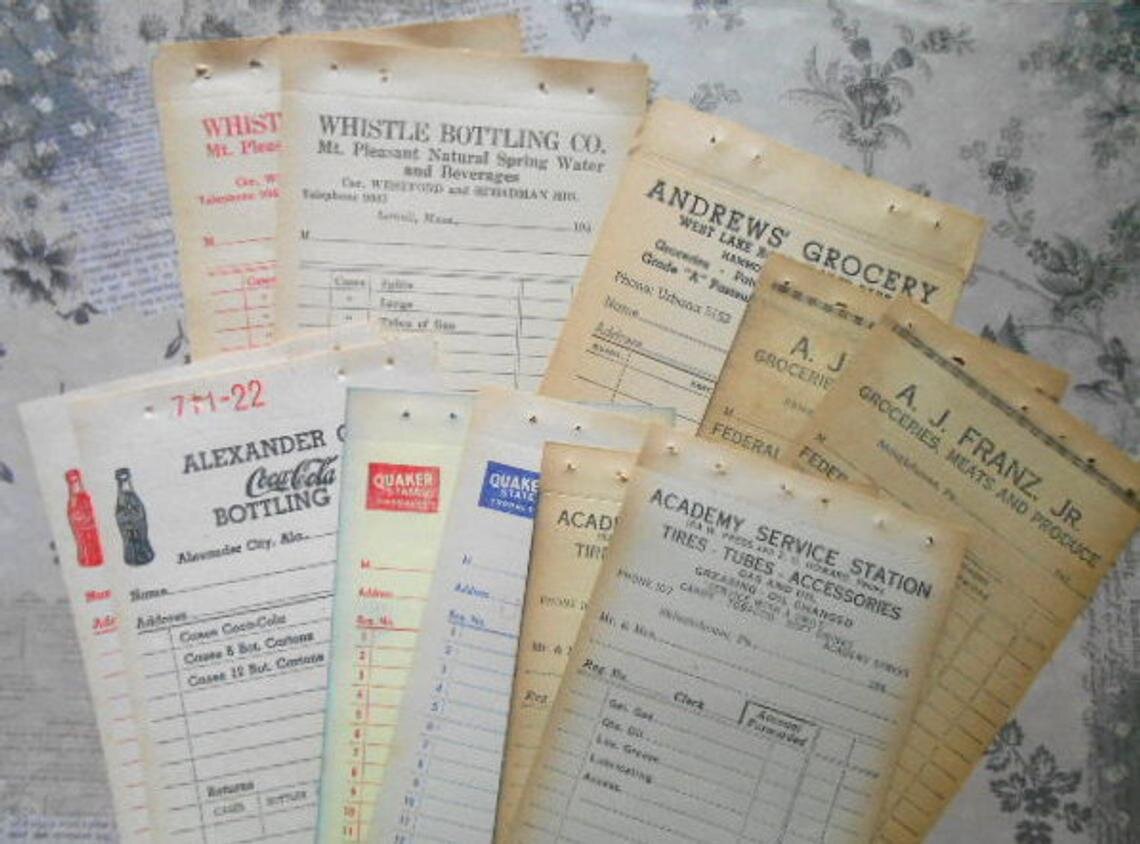 WHIST
Mt. Pleas
Telephone
M
WHISTLE BOTTLING CO.
Mt. Pleasant Natural Spring Water
and Beverages
Cor. WESTFORD and STEADMAN STS.
Telephone
Lowell, Mass. 194
M
Cases Splits
" Large
" Tubes of Gas
ANDREWS' GROCERY
WEST LAKE
HAMMO
Groceries - 
Grade "A" Pasteu
Phone: Urbana 5152
Name
Address
A. J
GROCERIE
M
FEDERAL
A. J. FRANZ, JR.
GROCERIES, MEATS AND PRODUCE
Pa.
M
FEDER
711-22
ALEXANDER C
Coca-Cola
BOTTLING
Alexander City, Ala.
Name
Address
Cases Coca-Cola
Cases 6 Bot. Cartons
Cases 12 Bot. Cartons
Returns
CASES BOTTLES
Nam
Adr
QUAKER
STATE
M
Address
Reg. No.
1
2
3
4
5
6
7
8
9
10
11
QUAKE
STATE
M
Address
Reg. No.
1
2
3
4
5
6
7
8
9
10
11
12
ACAD
TIR
PHONE
Mr. &
Reg.
ACADEMY SERVICE STATION
TIRES - TUBES, ACCESSORIES
GAS AND OIL
GREASING - OIL CHANGED
CARSERVICE WITH A
CANDY TOBACCO SOFT DRINKS
PHONE 107
ACADEMY STREET
Pa.
Mr. & Mrs.
Reg. No. Clerk Account
Forwarded
Gal. Gas
Qts. Oil
Lbs. Grease
Lubricating
Access.